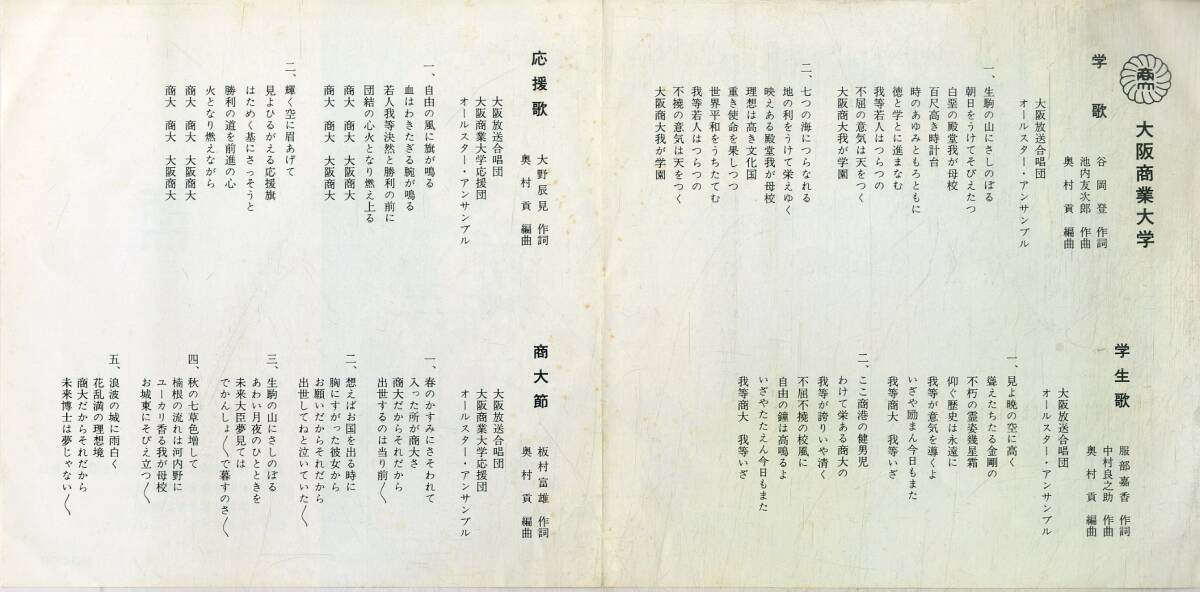 商大
大阪商業大学
学歌
谷岡登 作詞
池内友次郎 作曲
奥村貢 編曲
大阪放送合唱団
オールスター・アンサンブル
一、生駒の山にさしのぼる
朝日をうけてそびえたつ
白堊の殿堂我が母校
百尺高き時計台
時のあゆみともろともに
徳と学とに進まなむ
我等若人はつらつの
不屈の意気は天をつく
大阪商大我が学園
二、七つの海につらなれる
地の利をうけて栄えゆく
映えある殿堂我が母校
理想は高き文化国
重き使命を果しつつ
世界平和をうちたてむ
我等若人はつらつの
不撓の意気は天をつく
大阪商大我が学園
学生歌
服部嘉香 作詞
中村良之助 作曲
奥村貢 編曲
大阪放送合唱団
オールスター・アンサンブル
一、見よ晩の空に高く
聳えたちたる金剛の
不朽の霊姿幾星霜
仰ぐ歴史は永遠に
我等が意気を導くよ
いざや励まん今日もまた
我等商大 我等いざ
二、ここ商港の健男児
わけて栄ある商大の
我等が誇りいや清く
不屈不撓の校風に
自由の鐘は高鳴るよ
いざやたたえん今日もまた
我等商大 我等いざ
応援歌
大野辰見 作詞
奥村貢 編曲
大阪放送合唱団
大阪商業大学応援団
オールスター・アンサンブル
一、自由の風に旗が鳴る
血はわきたぎる腕が鳴る
若人我等決然と勝利の前に
団結の心火となり燃え上る
商大 商大 大阪商大
商大 商大 大阪商大
二、輝く空に眉あげて
見よひるがえる応援旗
はためく基にさっそうと
勝利の道を前進の心
火となり燃えながら
商大 商大 大阪商大
商大 商大 大阪商大
商大節
板村富雄 作詞
奥村貢 編曲
大阪放送合唱団
大阪商業大学応援団
オールスター・アンサンブル
一、春のかすみにさそわれて
入った所が商大さ
商大だからそれだから
出世するのは当り前〳〵
二、想えばお国を出る時に
胸にすがった彼女から
お願いだからそれだから
出世してねと泣いていた〳〵
三、生駒の山にさしのぼる
あわい月夜のひとときを
未来大臣夢見ては
でかんしょ〳〵で暮すのさ〳〵
四、秋の七草色増して
楠根の流れは河内野に
ユーカリ香る我が母校
お城東にそびえ立つ〳〵
五、浪波の城に雨白く
花乱満の理想境
商大だからそれだから
未来博士は夢じゃない〳〵